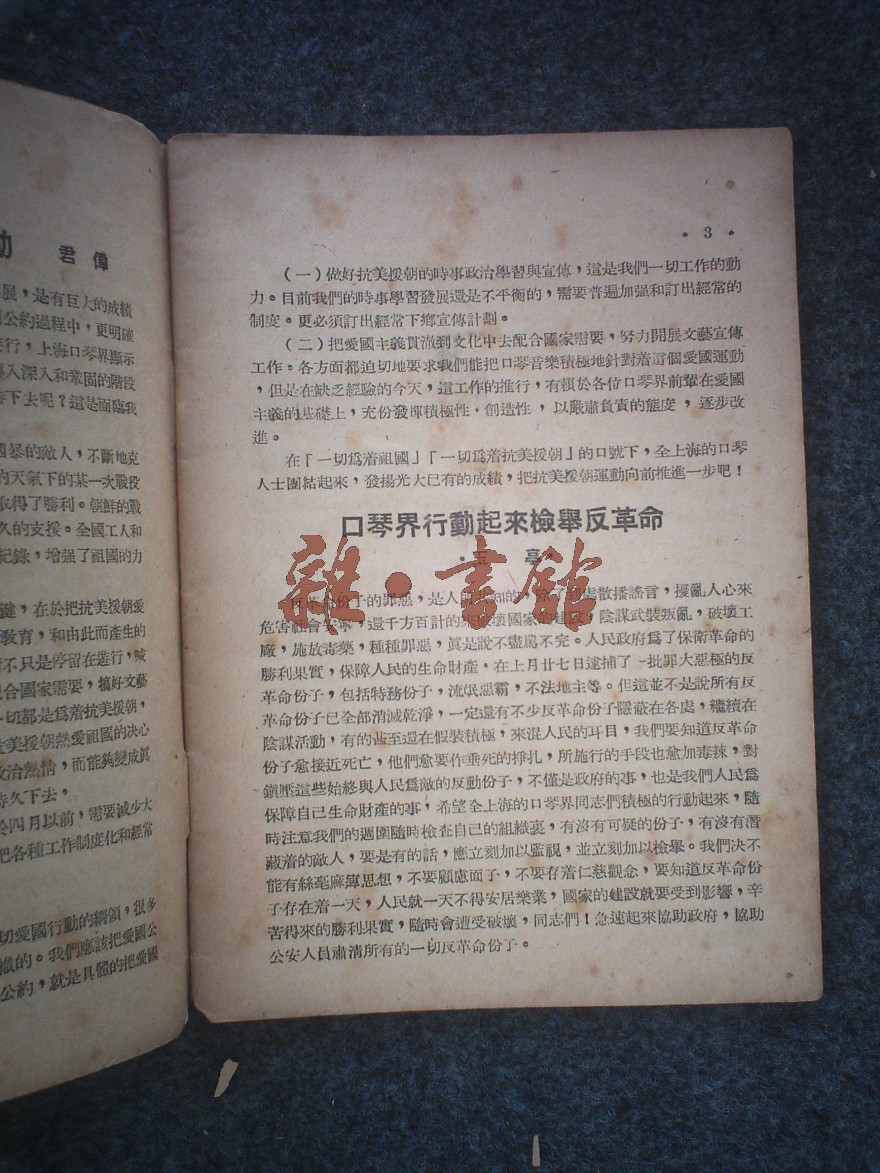 動 君偉
展，是有巨大的成績
公約過程中，更明確
行，上海口琴界顯示
入深入和鞏固的階段
下去呢？這是面臨我
暴的敵人，不斷地克
的天氣下的某一次戰役
取得了勝利。朝鮮的戰
久的支援。全國工人和
紀錄，增强了祖國的力
鍵，在於把抗美援朝愛
敎育，和由此而產生的
不只是停留在遊行，喊
合國家需要，搞好文藝
切都是爲着抗美援朝，
抗美援朝熱愛祖國的决心
政治熱情，而能夠變成眞
持久下去。
於四月以前，需要減少大
把各種工作制度化和經常
切愛國行動的綱領，很多
織的。我們應該把愛國公
公約，就是具體的把愛國
• 3 •
（一）做好抗美援朝的時事政治學習與宣傳，這是我們一切工作的動
力。目前我們的時事學習發展還是不平衡的，需要普遍加强和訂出經常的
制度。更必須訂出經常下鄉宣傳計劃。
（二）把愛國主義貫澈到文化中去配合國家需要，努力開展文藝宣傳
工作。各方面都迫切地要求我們能把口琴音樂積極地針對着這個愛國運動
，但是在缺乏經驗的今天，這工作的推行，有賴於各位口琴界前輩在愛國
主義的基礎上，充份發揮積極性·創造性，以嚴肅負責的態度，逐步改
進。
在「一切爲着祖國」「一切爲着抗美援朝」的口號下，全上海的口琴
人士團結起來，發揚光大已有的成績，把抗美援朝運動向前推進一步吧！
口琴界行動起來檢舉反革命
·玉 亭·
雜·書館
反革命份子的罪惡，是人所共知的，除了到處散播謠言，擾亂人心來
危害社會安寧，還千方百計的來破壞國家的建設，陰謀武裝叛亂，破壞工
廠，施放毒藥，種種罪惡，眞是說不盡駡不完。人民政府爲了保衛革命的
勝利果實，保障人民的生命財產，在上月廿七日逮捕了一批罪大惡極的反
革命份子，包括特務份子，流氓惡霸，不法地主等。但這並不是說所有反
革命份子已全部消滅乾淨，一定還有不少反革命份子隱蔽在各處，繼續在
陰謀活動，有的甚至還在假裝積極，來混人民的耳目，我們要知道反革命
份子愈接近死亡，他們愈要作垂死的掙扎，所施行的手段也愈加毒辣，對
鎭壓這些始終與人民爲敵的反動份子，不僅是政府的事，也是我們人民爲
保障自己生命財產的事，希望全上海的口琴界同志們積極的行動起來，隨
時注意我們的週圍隨時檢查自己的組織裏，有沒有可疑的份子，有沒有潛
藏着的敵人，要是有的話，應立刻加以監視，並立刻加以檢舉。我們决不
能有絲毫麻薄思想，不要顧慮面子，不要存着仁慈觀念，要知道反革命份
子存在着一天，人民就一天不得安居樂業，國家的建設就要受到影響，辛
苦得來的勝利果實，隨時會遭受破壞，同志們！急速起來協助政府，協助
公安人員肅清所有的一切反革命份子。